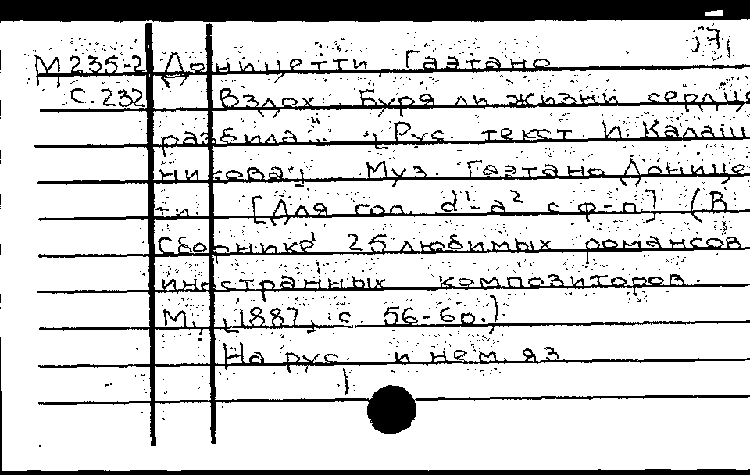 17
М 235-2 Доницетти, Гаэтано
С. 232 Вздох. "Буря ли жизни сердце
разбила..." [Рус. текст И. Калаш-
никова]. Муз. Гаэтано Доницет-
ти. [Для гол. d¹-a² с ф-п] (В
сборнике 25 любимых романсов
иностранных композиторов.
М., [1887], с. 56-60.)
На рус. и нем. яз.